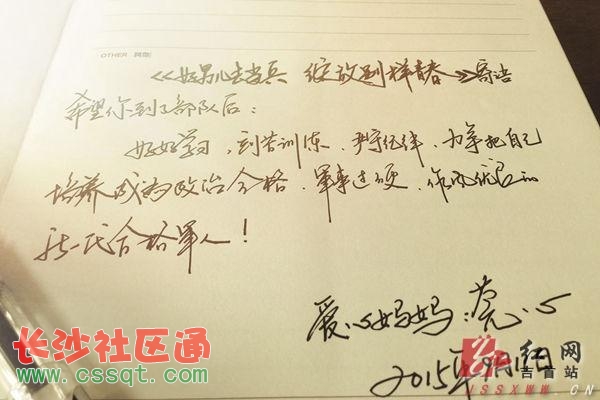 OTHER 其他
《好男儿去当兵 绽放别样青春》寄语
希望你到了部队后：
好好学习、刻苦训练、严守纪律、力争把自己
培养成为政治合格、军事过硬、作风优良的
新一代合格军人！
爱心妈妈：
2015年9月11日
长沙社区通
www.cssqt.com
红网
吉首站
JSSXWW.CN